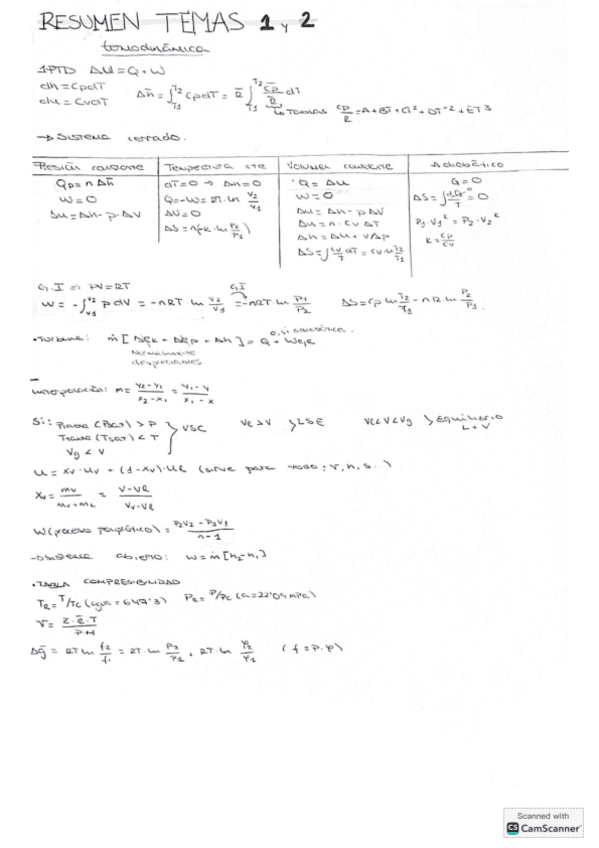 RESUMEN TEMAS 1 y 2
termodinámica
1PTD ΔU = Q + W
dh = CpdT
du = CvdT
Δh̄ = ∫T1T2 CpdT = R̄ ∫T1T2 C̄p/R̄ dT
↳ Tablas Cp/R = A + BT + CT² + DT⁻² + ET³
→ Sistema cerrado.
Presión constante | Temperatura cte | Volumen constante | Adiabático
Qp = n Δh̄ | ΔT = 0 → Δh = 0 | Q = Δu | Q = 0
W = 0 | Q = -W = RT · ln V2/V1 | W = 0 | ΔS = ∫ dQ/T = 0
Δu = Δh - p · ΔV | ΔU = 0 | Δu = Δh - p ΔV | P1 · V1ᴷ = P2 · V2ᴷ
ΔS = n(R · ln P2/P1) | Δu = n · Cv ΔT | K = Cp/Cv
Δh = Δu + VΔp
ΔS = ∫ Cv/T dT = Cv · ln T2/T1
G.I ⇒ PV = RT
W = -∫V1V2 p dV = -nRT · ln V2/V1 = -nRT · ln P1/P2 ΔS = Cp ln T2/T1 - nR · ln P2/P1
G.I
0, si adiabática.
• Turbina: ṁ [ΔEk + ΔEp + Δh] = Q + Weje
Normalmente
despreciables
Interpolación: m = y2 - y1 / x2 - x1 = y1 - y / x1 - x
Si: P (Psat) > P
T (Tsat) < T
Vg < V
} VSC
Ve > V } LSE
Ve < V < Vg } equilibrio
L + V
u = Xv · uv + (1 - Xv) · ue (sirve para todo: v, h, s...)
Xv = mv / mv + mL = V - Ve / Vv - Ve
W (proceso politrópico) = P2V2 - P1V1 / n - 1
→ sistema abierto: W = ṁ [h2 - h1]
• TABLA COMPRESIBILIDAD
TR = T/Tc (agua = 647'3) PR = P/Pc (a = 22'09 MPa)
V = Z · R̄ · T / P · M
Δḡ = RT ln f2/f1 = RT · ln P2/P1 + RT · ln φ2/φ1 (f = P · φ)
Scanned with
CS CamScanner